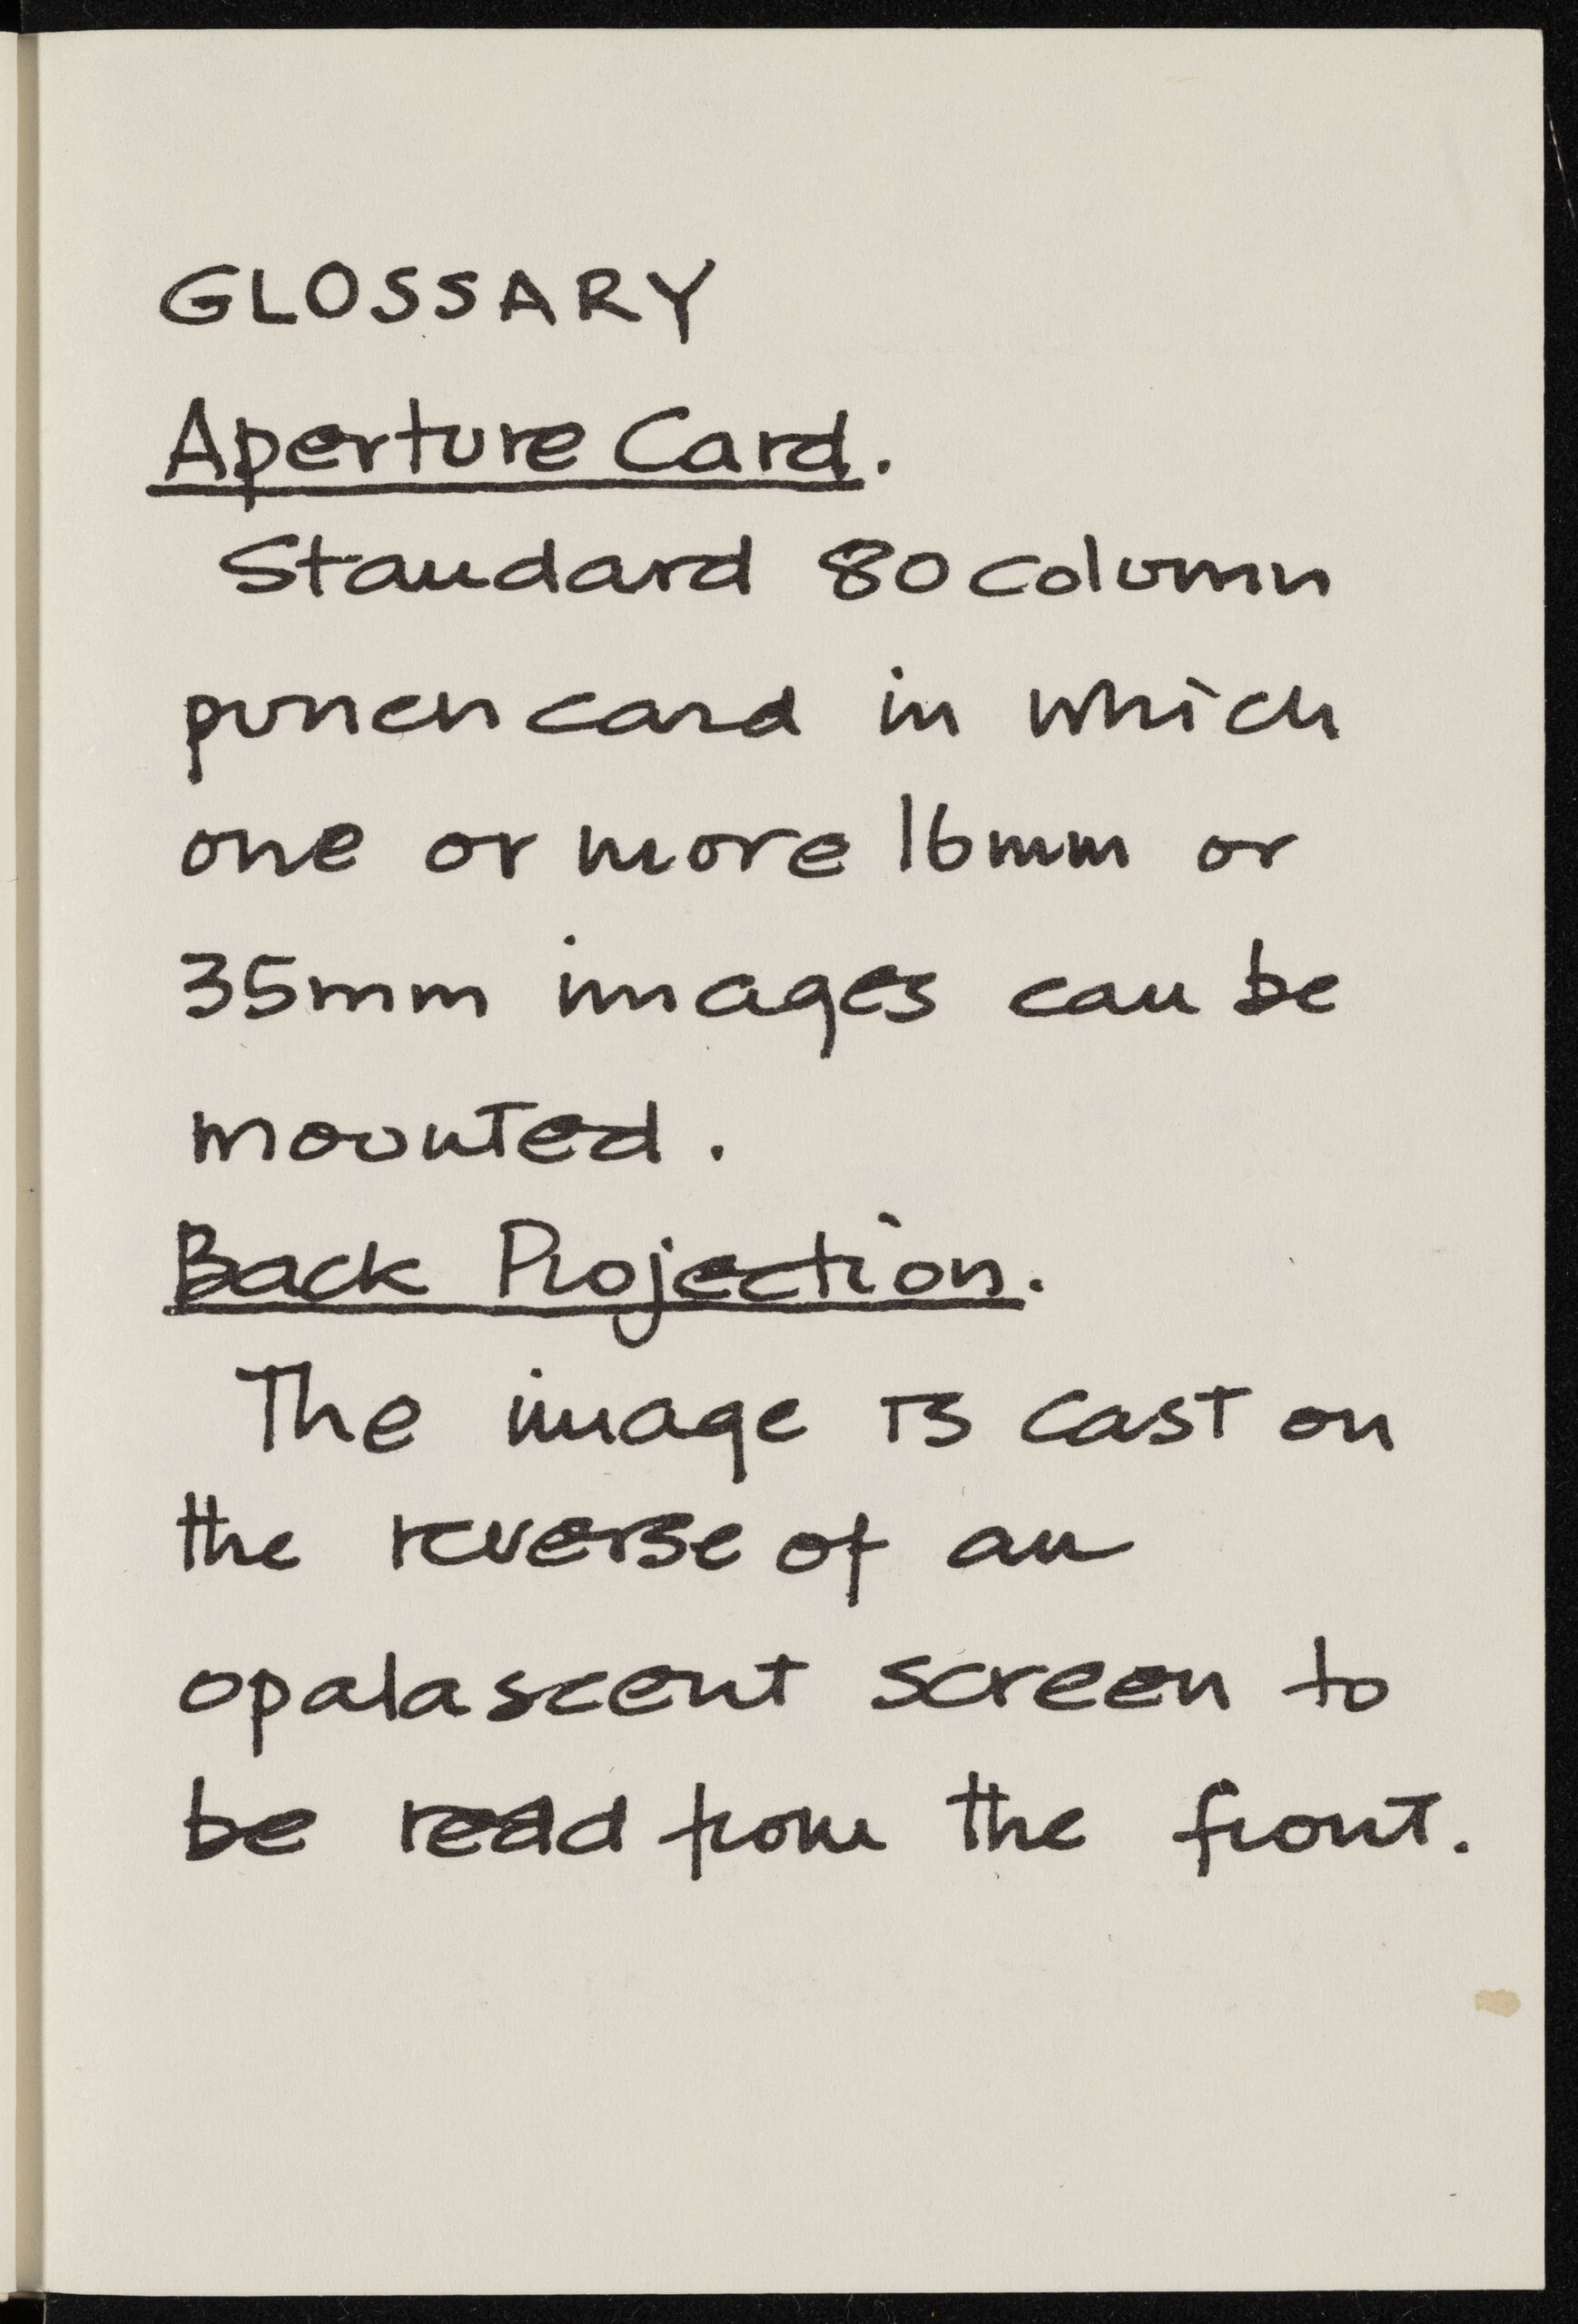 GLOSSARY
Aperture Card.
Standard 80 column
punch card in which
one or more 16mm or
35mm images can be
mounted.
Back Projection.
The image is cast on
the reverse of an
opalascent screen to
be read from the front.